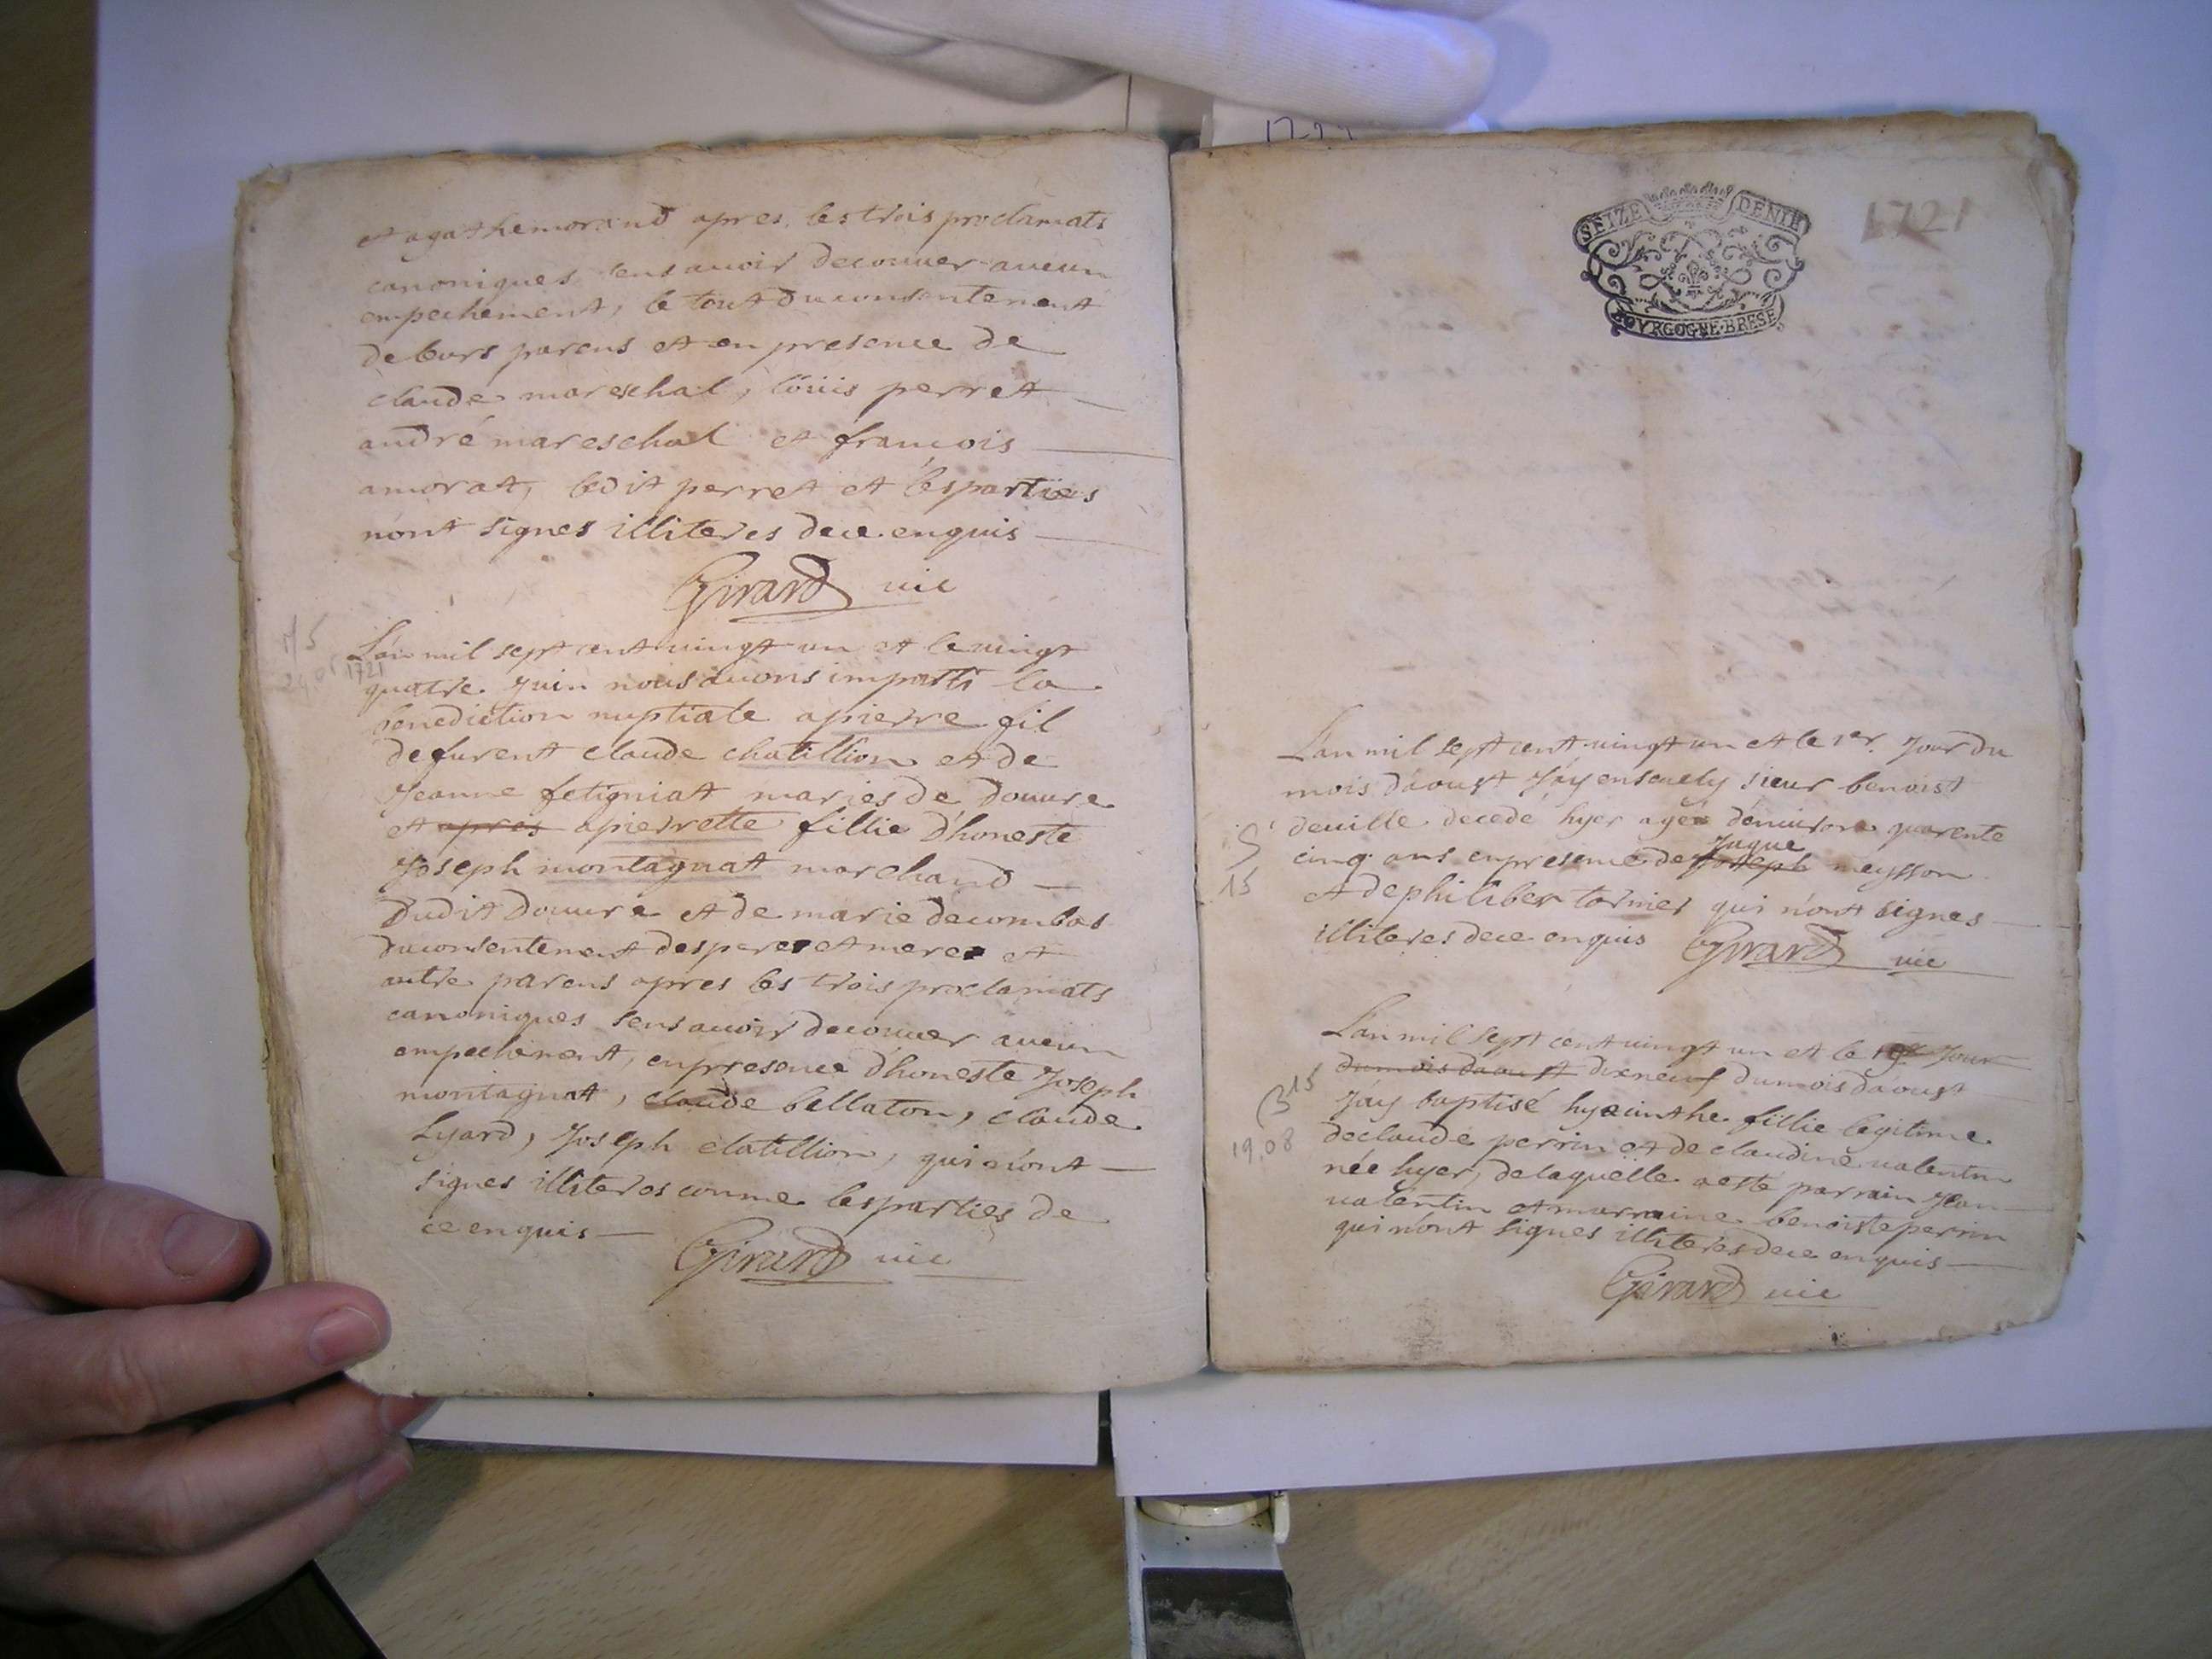 et agathe morand apres les trois proclamats
canoniques sens avoir decouver aucun
empechement, le tout du consentement
de leurs parens et en presence de
claude mareschal, loüis perret
andré mareschal et françois
amorat, ledit perret et les parties
n'ont signes illiteres de ce enquis
Girard vic
L'an mil sept cent vingt un et le vingt
1721
quatre Juin nous avons imparti la
benediction nuptiale a pierre fil
de furent claude chatillion et de
Jeanne fetigniat maries de douvre
et apres a pierrette fillie d'honeste
Joseph montagnat marchand
dudit douvre et de marie decombas
du consentement des peres et meres et
autre parens apres les trois proclamats
canoniques sens avoir decouver aucun
empechement, en presence d'honeste Joseph
montagnat, claude bellaton, claude
Lyard, Joseph clatillion, qui n'ont
signes illiteres comme les parties de
ce enquis
Girard vic
SEIZE DENIE
BOVRGOGNE·BRESE
1721
L'an mil sept cent vingt un et le 1er. Jour du
mois d'aoust J'ay ensevely sieur benoist
deville decede hyer agé d'environ quarente
Jaque
cinq ans en presence de Joseph meysson
et de philiber tornier qui n'ont signes
illiteres de ce enquis Girard vic
S
15
L'an mil sept cent vingt un et le Jour
du mois daoust dixneuf du mois daoust
B 15
J'ay baptisé hyacinthe fillie legitime
19.08
de claude perrin et de claudine valentin
née hyer, de laquelle a esté parrain Jean
valentin et marraine benoiste perrin
qui n'ont signes illiteres de ce enquis
Girard vic